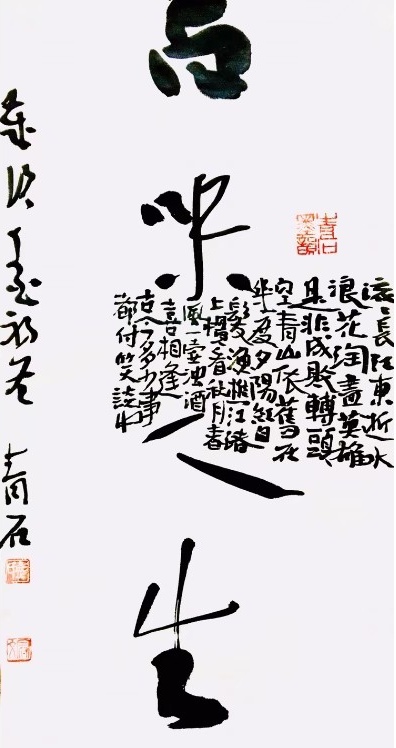 之生
滚滚長江東逝水
浪花淘盡英雄
是非成敗轉頭
空青山依舊在
幾度夕陽紅白
髮漁樵江渚
上慣看秋月春
風一壺濁酒
喜相逢
古今多少事
都付笑談中
歲次 青石